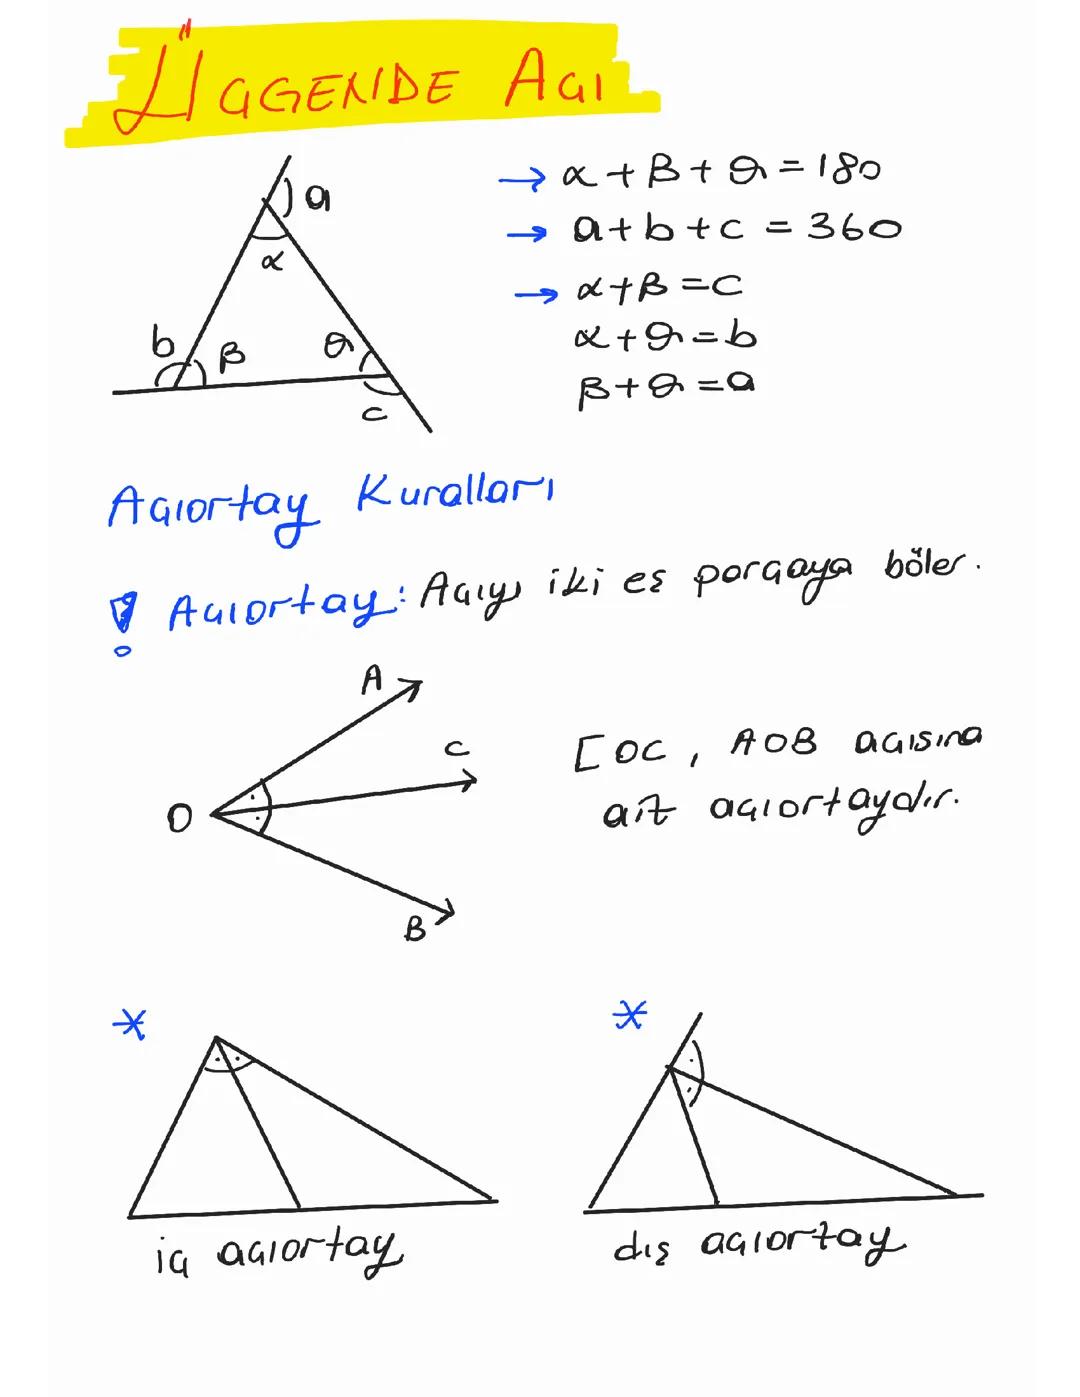 ÜÇGENDE AÇI
a
α
b
β
θ
c
→ α + β + θ = 180
→ a + b + c = 360
→ α + β = c
α + θ = b
β + θ = a
Açıortay Kuralları
! Açıortay: Açıyı iki eş parçaya böler.
A
C
O
B
[OC, AOB açısına
ait açıortaydır.
*
*
iç açıortay
dış açıortay